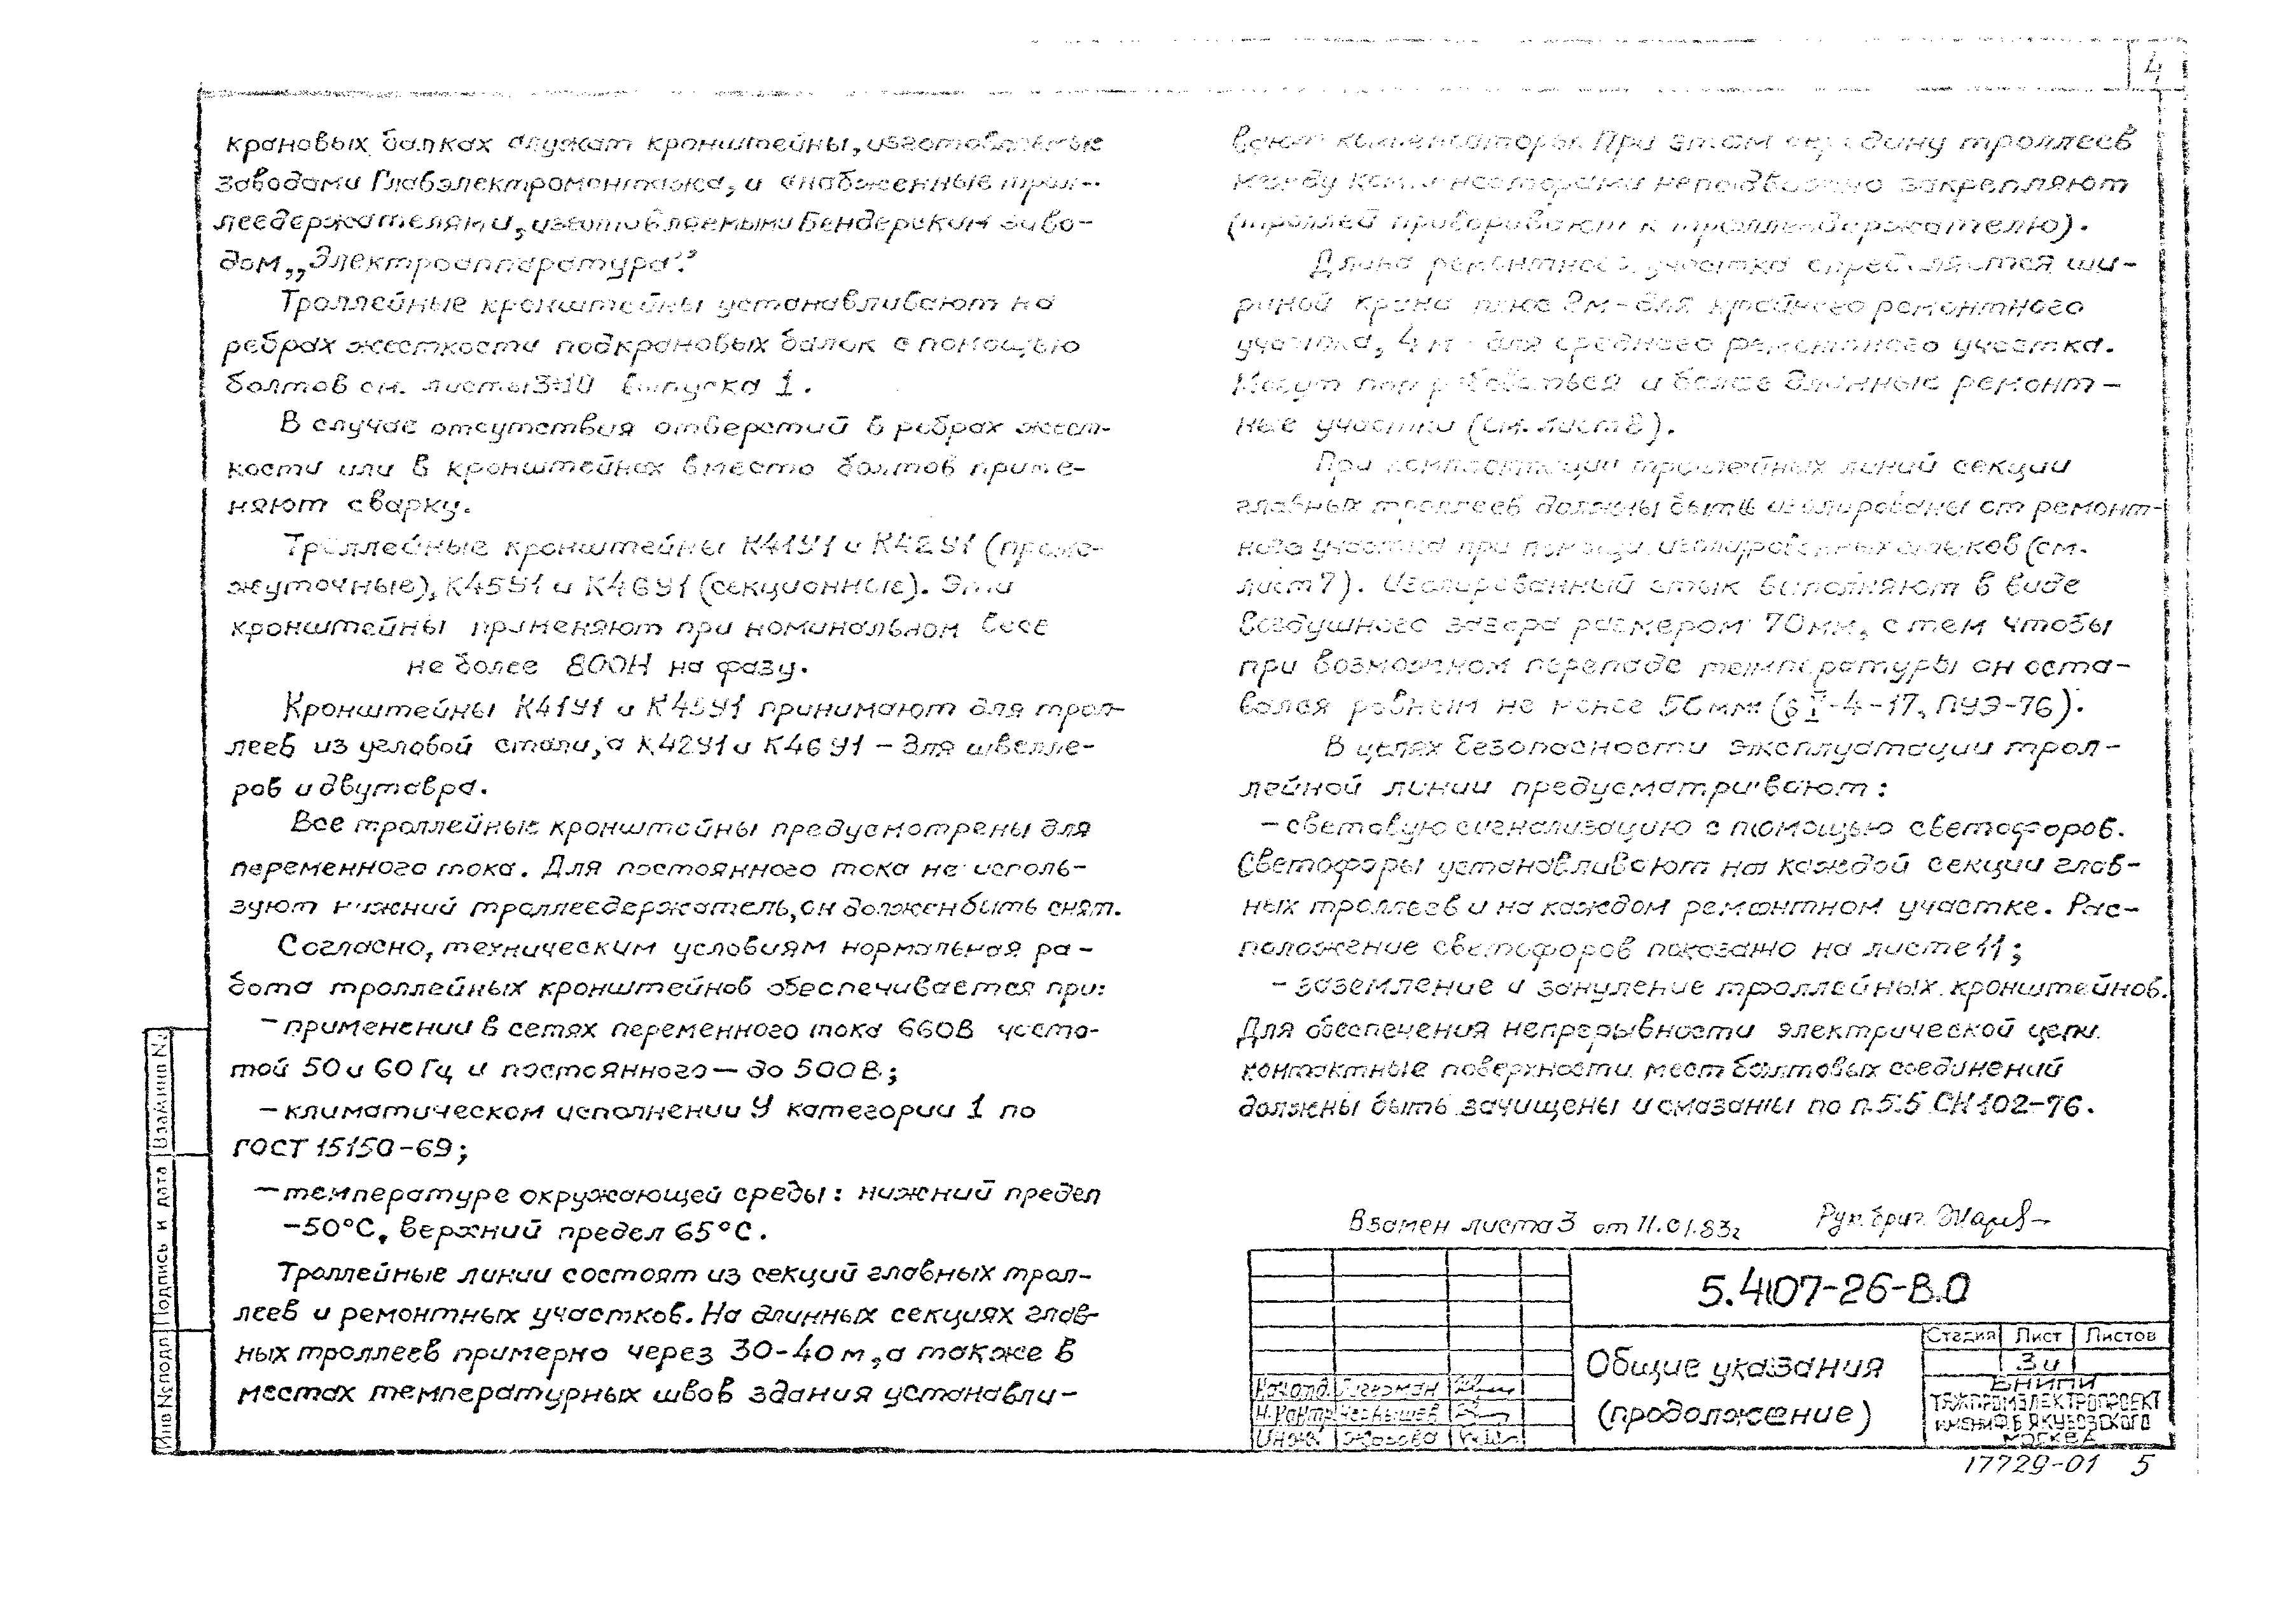 4
крановых балках служат кронштейны, изготовляемые
заводами Главэлектромонтажа, и снабженные трол-
леедержателями, изготовляемыми Бендерским заво-
дом „Электроаппаратура".
Троллейные кронштейны устанавливают на
ребрах жесткости подкрановых балок с помощью
болтов см. листы 3÷10 выпуска 1.
В случае отсутствия отверстий в ребрах жест-
кости или в кронштейнах вместо болтов приме-
няют сварку.
Троллейные кронштейны К41У1 и К42У1 (проме-
жуточные), К45У1 и К46У1 (секционные). Эти
кронштейны применяют при номинальном весе
не более 800Н на фазу.
Кронштейны К41У1 и К45У1 принимают для трол-
леев из угловой стали, а К42У1 и К46У1 – для швелле-
ров и двутавра.
Все троллейные кронштейны предусмотрены для
переменного тока. Для постоянного тока не исполь-
зуют нижний троллеедержатель, он должен быть снят.
Согласно, техническим условиям нормальная ра-
бота троллейных кронштейнов обеспечивается при:
– применении в сетях переменного тока 660В часто-
той 50 и 60 Гц и постоянного – до 500В;
– климатическом исполнении У категории 1 по
ГОСТ 15150-69;
– температуре окружающей среды: нижний предел
-50°С, верхний предел 65°С.
Троллейные линии состоят из секций главных трол-
леев и ремонтных участков. На длинных секциях глав-
ных троллеев примерно через 30-40 м, а также в
местах температурных швов здания устанавли-
вают компенсаторы. При этом середину троллеев
между компенсаторами неподвижно закрепляют
(троллей приваривают к троллеедержателю).
Длина ремонтного участка определяется ши-
риной крана плюс 2м – для крайнего ремонтного
участка, 4 м – для среднего ремонтного участка.
Могут потребоваться и более длинные ремонт-
ные участки (см. лист 8).
При комплектации троллейных линий секции
главных троллеев должны быть изолированы от ремонт-
ного участка при помощи изолированных стыков (см.
лист 7). Изолированный стык выполняют в виде
воздушного зазора размером 70мм, с тем чтобы
при возможном перепаде температуры он оста-
вался равным не менее 50мм (§ V-4-17, ПУЭ-76).
В целях безопасности эксплуатации трол-
лейной линии предусматривают:
– световую сигнализацию с помощью светофоров.
Светофоры устанавливают на каждой секции глав-
ных троллеев и на каждом ремонтном участке. Рас-
положение светофоров показано на листе 11;
– заземление и зануление троллейных кронштейнов.
Для обеспечения непрерывности электрической цепи
контактные поверхности мест болтовых соединений
должны быть зачищены и смазаны по п. 5.5 СН 102-76.
Взамен листа 3 от 11.01.83г Рук. бриг.
5.407-26-В.0
Общие указания
(продолжение)
Стадия Лист Листов
3и
ВНИПИ
ТЯЖПРОМЭЛЕКТРОПРОЕКТ
ИМЕНИ Ф.Б. ЯКУБОВСКОГО
МОСКВА
Нач.отд.
Н.контр. Чернышев
Инж. Жарова
Взам.инв N
Подпись и дата
Инв N подл
17729-01 5